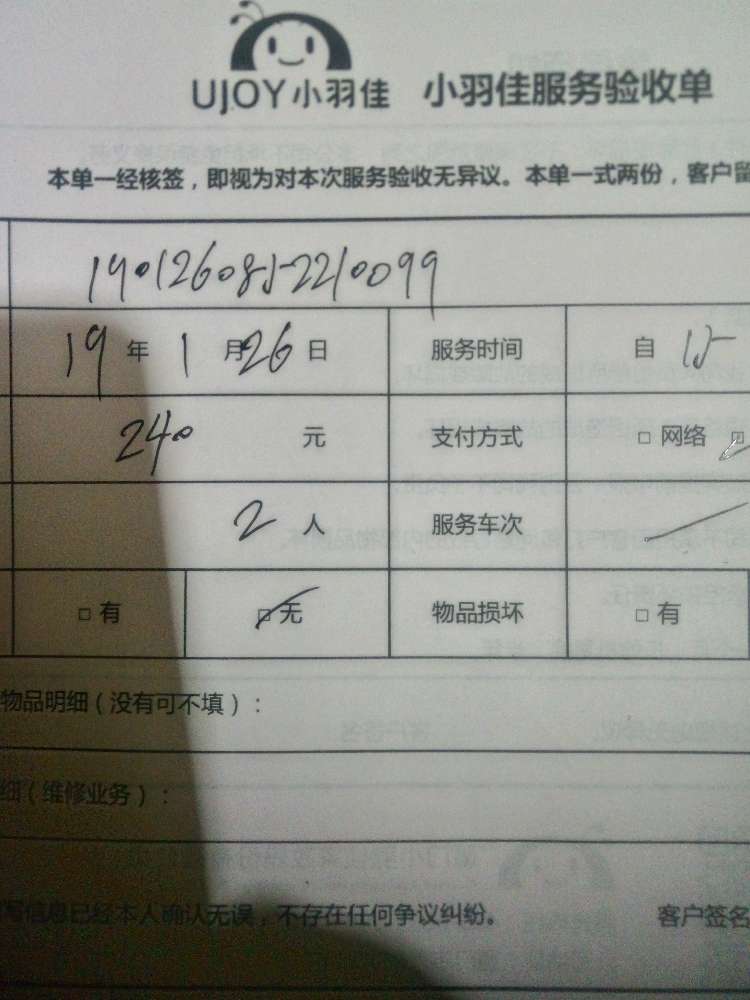 UJOY小羽佳 小羽佳服务验收单
本单一经核签，即视为对本次服务验收无异议。本单一式两份，客户留
1901260852210099
19 年 1 月 26 日 服务时间 自 15
240 元 支付方式 □ 网络 □
2 人 服务车次
□ 有 □ 无 物品损坏 □ 有
物品明细（没有可不填）：
细（维修业务）：
写信息已经本人确认无误，不存在任何争议纠纷。 客户签名